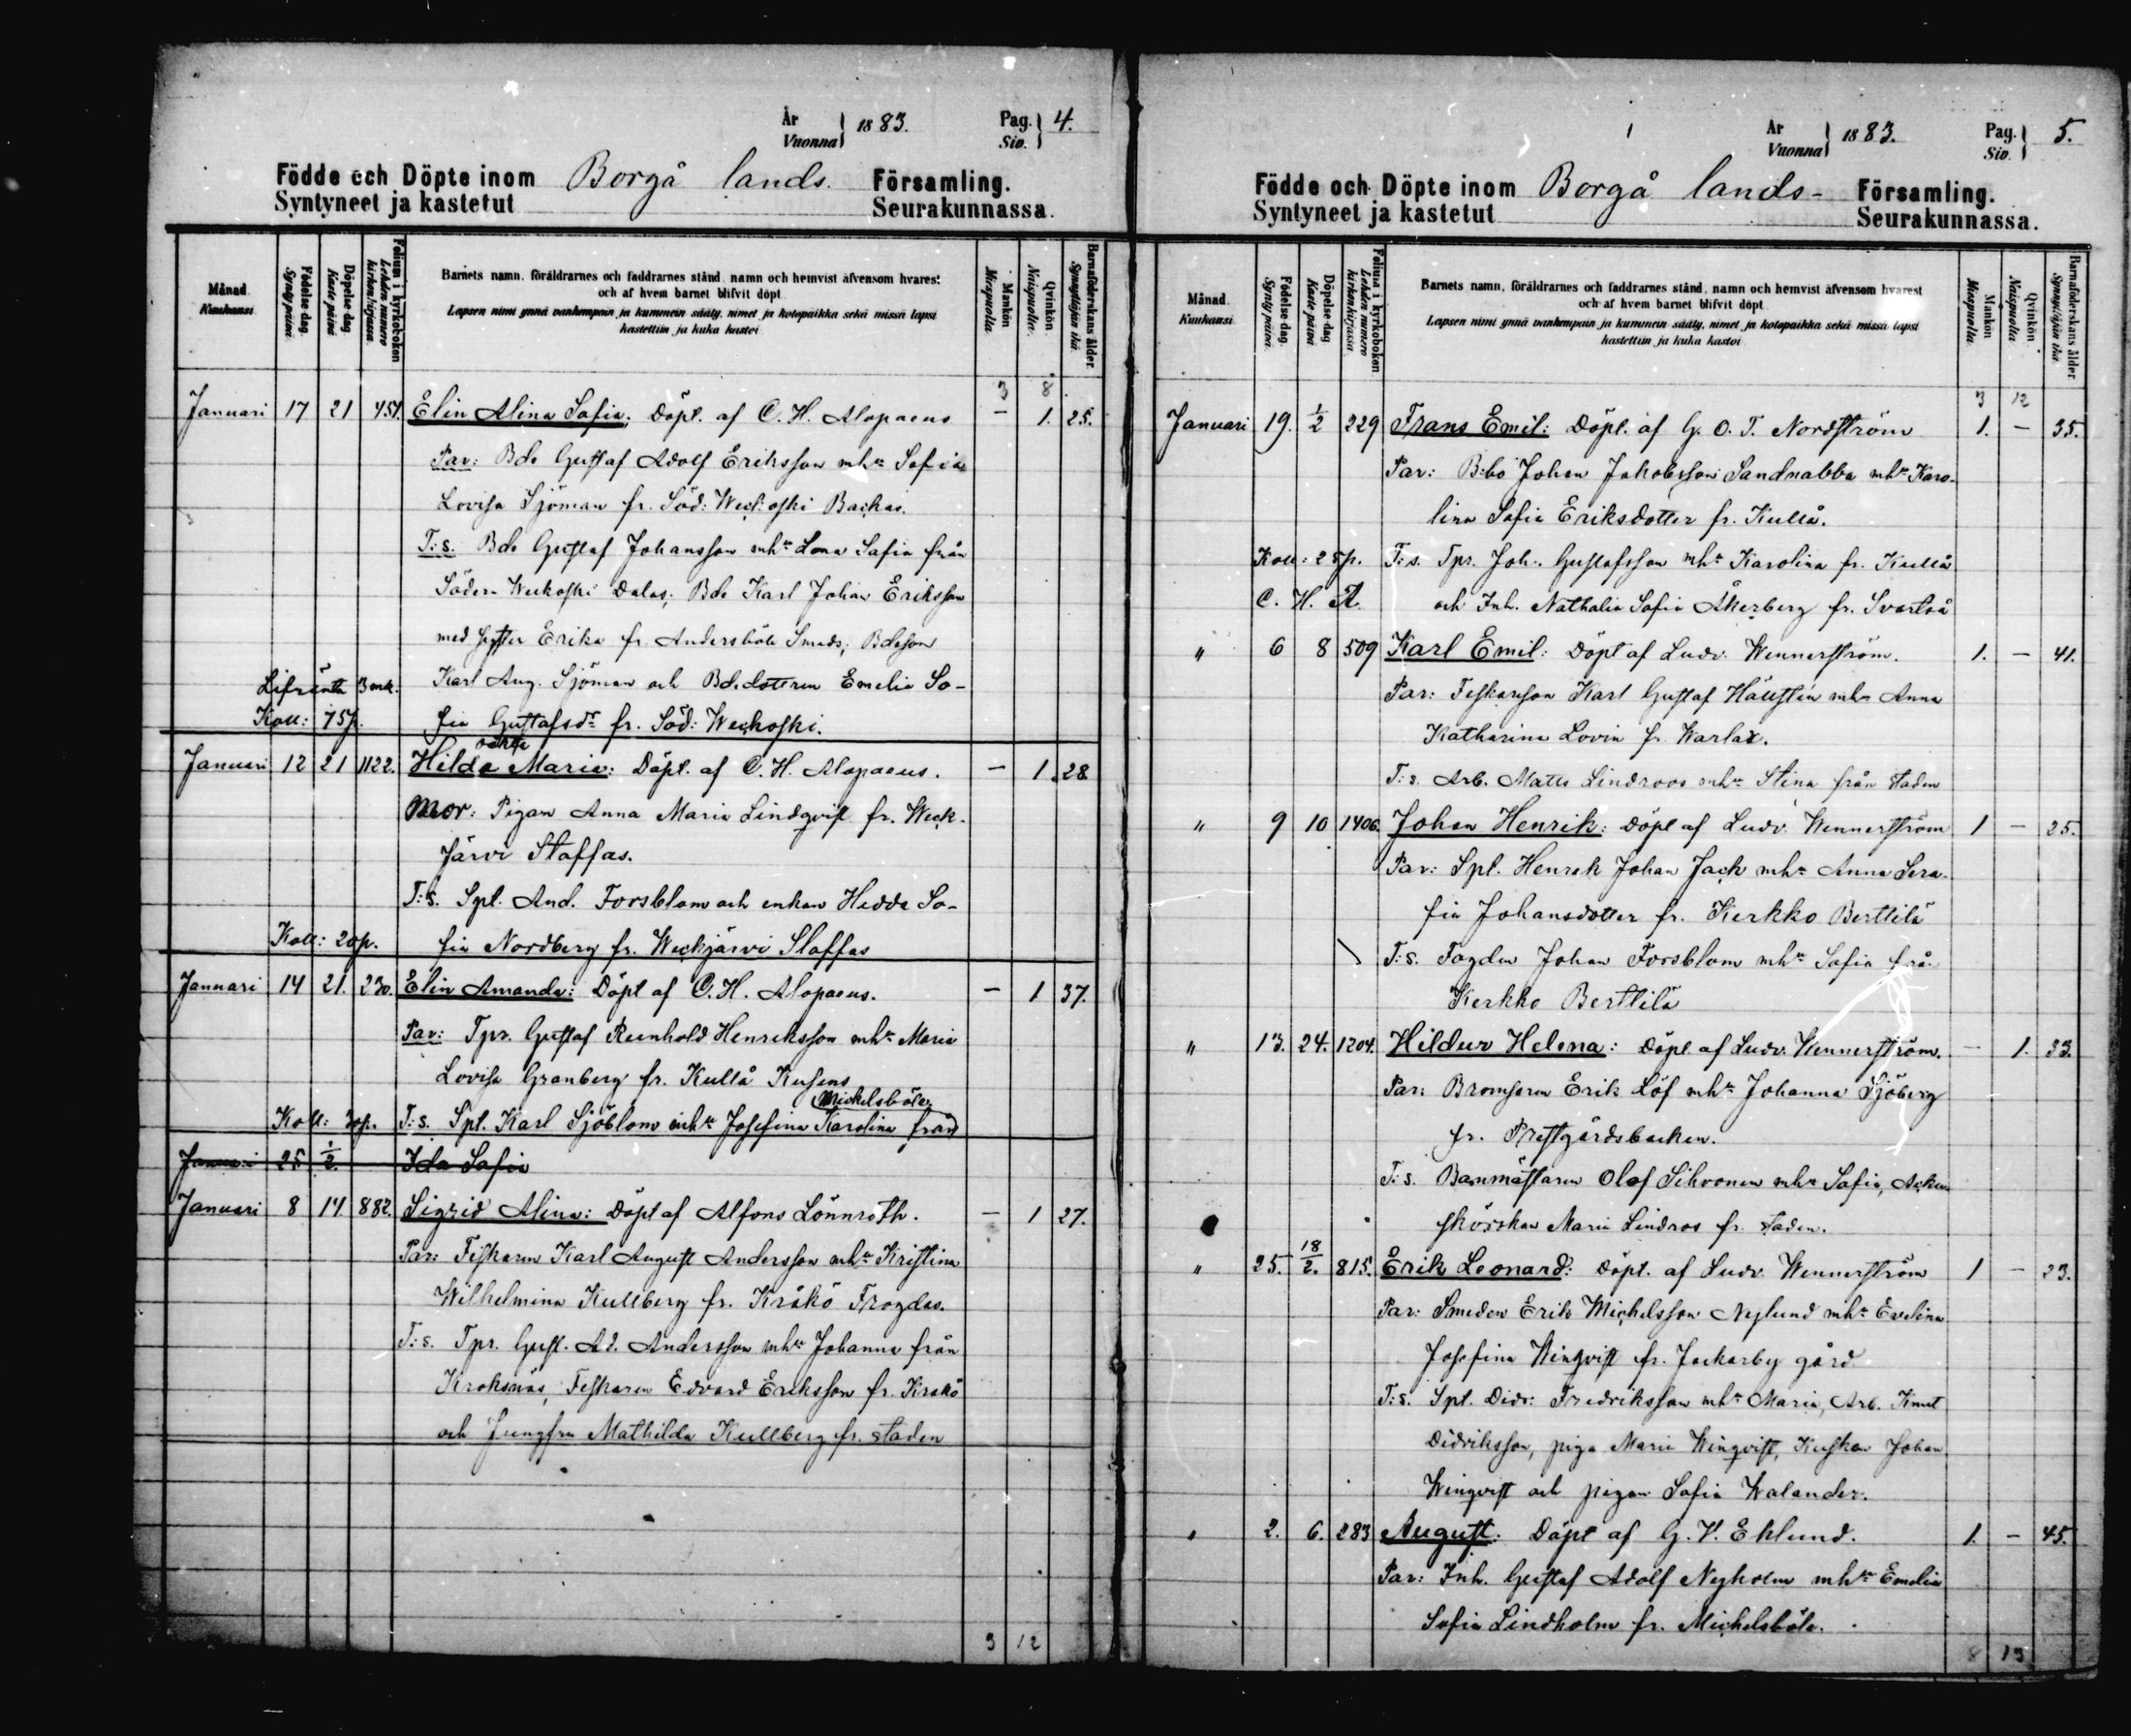 År
Vuonna 1883. Pag. Siv. 4.
Födde och Döpte inom Borgå lands. Församling.
Syntyneet ja kastetut Seurakunnassa.
Månad Kuukausi
Födelse-dag Syntypäivä
Döpelse-dag Kastepäivä
Folium i kyrkoboken Lehden numero kirkonkirjassa
Barnets namn, föräldrarnes och faddrarnes stånd, namn och hemvist äfvensom hvarest
och af hvem barnet blifvit döpt
Lapsen nimi ynnä vanhempain ja kummein sääty, nimet ja kotopaikka sekä missä lapsi
kastettiin ja kuka kastoi
Mankön Miespuolia.
Qvinkön Naispuolia.
Barnaföderskans ålder. Synnyttäjän ikä
3 8
Januari 17 21 451. Elin Alina Sofia: Döpt. af C. H. Alopaeus — 1. 25.
Par: Bde Gustaf Adolf Eriksson mhu Sofia
Lovisa Sjöman fr. Söd: Weckoski Backas.
T:s. Bde Gustaf Johansson mhu Lena Sofia från
Söder Weckoski Dalas; Bde Karl Johan Eriksson
med hustru Erika fr. Andersböle Smeds; Bdeson
Lifränta 3 mk. Karl Aug. Sjöman och Bd.dottren Emelia So-
Koll: 75p. fia Gustafsdr fr. Söd: Weckoski.
oäkta
Januari 12 21 1122. Hilda Maria: Döpt. af C. H. Alopaeus. — 1. 28
Mor: Pigan Anna Maria Lindqvist fr. Weck-
järvi Staffas.
T:s. Spl. And. Forsblom och enkan Hedda So-
Koll: 20p. fia Nordberg fr. Weckjärvi Staffas
Januari 14 21. 230. Elin Amanda: Döpt af C. H. Alopaeus. — 1 37.
Par: Tpr. Gustaf Reinhold Henriksson mhu Maria
Lovisa Granberg fr. Kullå Kusens
Mickelsböle.
Koll: 30p. T:s. Spl. Karl Sjöblom mhu Josefina Karolina från
Januari 25 1/2. Ida Sofia
Januari 8 14 882. Sigrid Alina: Döpt af Alfons Lönnroth. — 1 27.
Par: Fiskaren Karl August Andersson mhu Kristina
Wilhelmina Kullberg fr. Kråkö Frogdas.
T:s. Tpr. Gust. Ad. Andersson mhu Johanna från
Kroksnäs, Fiskaren Edvard Eriksson fr. Kråkö
och Jungfru Mathilda Kullberg fr. staden
3 12
År
Vuonna 1883. Pag. Siv. 5.
Födde och Döpte inom Borgå lands- Församling.
Syntyneet ja kastetut Seurakunnassa.
Månad. Kuukausi
Födelse-dag Syntypäivä.
Döpelse-dag Kastepäivä
Folium i kyrkoboken Lehden numero kirkonkirjassa
Barnets namn, föräldrarnes och faddrarnes stånd, namn och hemvist äfvensom hvarest
och af hvem barnet blifvit döpt.
Lapsen nimi ynnä vanhempain ja kummein sääty, nimet ja kotopaikka sekä missä lapsi
kastettiin ja kuka kastoi
Mankön Miespuolia.
Qvinkön Naispuolia.
Barnaföderskans ålder Synnyttäjän ikä
3 12
Januari 19. 1/2 229 Frans Emil: Döpt. af G. O. T. Nordström 1. — 35.
Par: B:bo Johan Jakobsson Sandnabba mhu Karo-
lina Sofia Eriksdotter fr. Kullå.
Koll: 25p. T:s. Tpr. Joh. Gustafsson mhu Karolina fr. Kullå
C. H. A. och Inh. Nathalia Sofia Åkerberg fr. Svartså
" 6 8 509 Karl Emil: Döpt af Ludv. Wennerström. 1. — 41.
Par: Karl Gustaf mhu Anna
Katharina Lovin fr Karlax.
T:s. Arb. Matts Lindroos mhu Stina från staden
" 9 10 1406. Johan Henrik: Döpt af Ludv. Wennerström 1 — 25.
Par: Spl. Henrik Johan Jack mhu Anna Sera-
fia Johansdotter fr. Kerkko Berttilä
T:s. Fogden Johan Forsblom mhu Sofia från
Kerkko Berttilä
" 13. 24. 1204. Hildur Helena: Döpt af Ludv. Wennerström. — 1. 33.
Par: Bromsaren Erik Löf mhu Johanna Sjöberg
fr. Prestgårdsbacken.
T:s. Banmästaren Olof Sihvonen mhu Sofia,
Maria Lindros fr. staden.
" 25. 18/2. 815. Erik Leonard: Döpt. af Ludv. Wennerström 1 — 23.
Par: Smeden Erik Michelsson Nylund mhu Evelina
Josefina Winqvist fr. Jackarby gård
T:s. Spl. Didr: Fredriksson mhu Maria, Arb. Knut
Didriksson, piga Maria Winqvist, Kusken Johan
Winqvist och pigan Sofia Walander.
" 2. 6. 283 August: Döpt af G. V. Eklund. 1. — 45.
Par: Inh. Gustaf Adolf Nyholm mhu Emelia
Sofia Lindholm fr. Michelsböle.
8 13